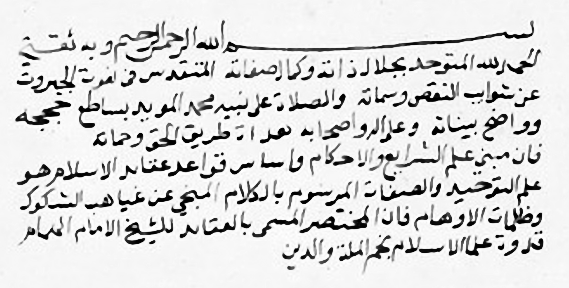 بســـــــــــم الله الرحمن الرحيم وبه ثقتي
الحمد لله المتوحد بجلال ذاته وكمال صفاته المتقدس في نعوت الجبروت
عن شوايب النقص وسماته والصلاة على نبيه محمد المويد بساطع حججه
وواضح بيناته وعلى اله واصحابه هداة طريق الحق وحماته
فان مبنى علم الشرايع والاحكام واساس قواعد عقايد الاسلام هو
علم التوحيد والصفات المرسوم بالكلام المنجى عن غياهب الشكوك
وظلمات الاوهام فان المختصر المسمى بالعقايد للشيخ الامام الهمام
قدوة علما الاسلام نجم الملة والدين